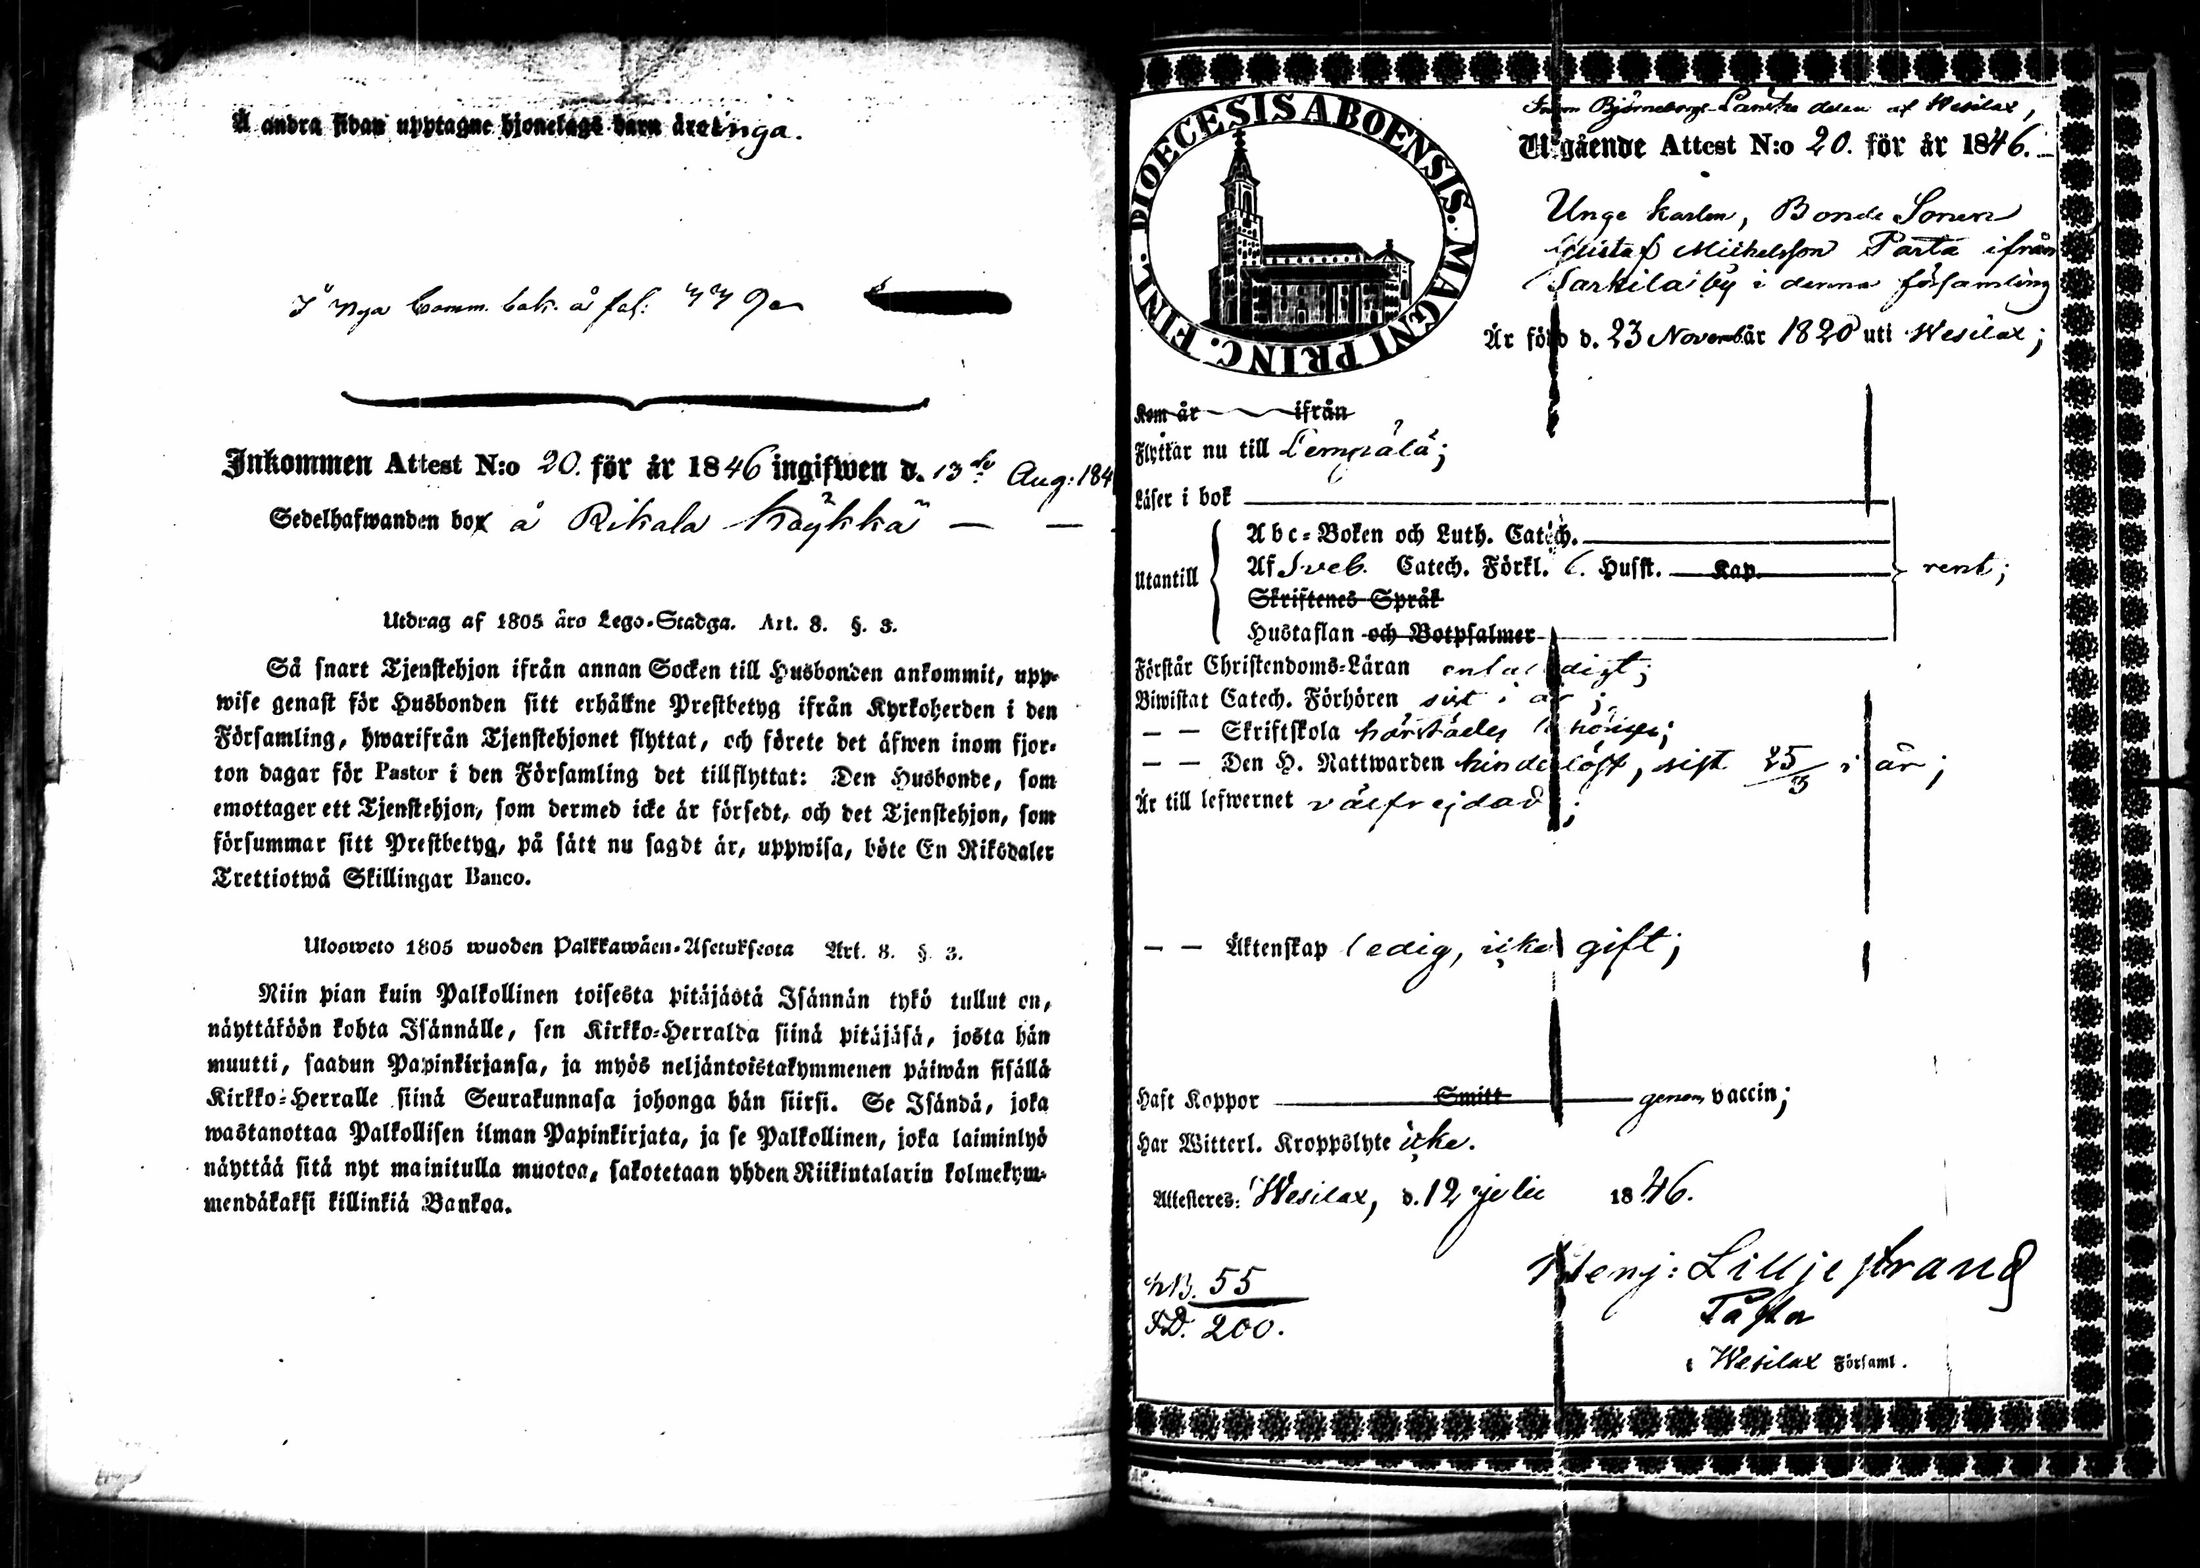 Å andra sidan upptagne hjonelags barn äro inga.
I Nya Comm. bok. å fol:
Inkommen Attest N:o 20. för år 1846 ingifwen d. 13de Aug: 184
Sedelhafwanden bor å Rikala Käykkä
Utdrag af 1805 åro Lego-Stadga. Art. 8. §. 3.
Så snart Tjenstehjon ifrån annan Socken till Husbonden ankommit, upp-
wise genast för Husbonden sitt erhållne Prestbetyg ifrån Kyrkoherden i den
Församling, hwarifrån Tjenstehjonet flyttat, och förete det äfwen inom fjor-
ton dagar för Pastor i den Församling det tillflyttat: Den Husbonde, som
emottager ett Tjenstehjon, som dermed icke är försedt, och det Tjenstehjon, som
försummar sitt Prestbetyg, på sätt nu sagdt är, uppwisa, böte En Riksdaler
Trettiotwå Skillingar Banco.
Ulosweto 1805 wuoden Palkkawäen-Asetuksesta Art. 8. §. 3.
Niin pian kuin Palkollinen toisesta pitäjästä Isännän tykö tullut on,
näyttäköön kohta Isännälle, sen Kirkko-Herralda siinä pitäjäsä, josta hän
muutti, saadun Papinkirjansa, ja myös neljäntoistakymmenen päiwän sisällä
Kirkko-Herralle siinä Seurakunnasa johonga hän siirsi. Se Isändä, joka
wastanottaa Palkollisen ilman Papinkirjata, ja se Palkollinen, joka laiminlyö
näyttää sitä nyt mainitulla muotoa, sakotetaan yhden Riikintalarin kolmekym-
mendäkaksi killinkiä Bankoa.
DIOECESIS ABOENSIS. MAGNI PRINC. FINL.
Inom Björneborgs Länske delen af Wesilax,
Utgående Attest N:o 20. för år 1846.
Unge karlen, Bonde Sonen
Gustaf Michelsson Parta ifrån
Sarkila by i denna församling
Är född d. 23 Novembär 1820 uti Wesilax;
Kom år ifrån
Flyttar nu till Lempälä;
Läser i bok
Utantill
Abc-Boken och Luth. Catech.
Af Sveb. Catech. Förkl. Husst. Kap.
Skriftenes Språk
Hustaflan och Botpsalmer
rent;
Förstår Christendoms-Läran enfaldigt;
Biwistat Catech. Förhören sist i år;
— — Skriftskola härstädes
— — Den H. Nattwarden hinderlöst, sist 25/3 i år;
Är till lefwernet välfrejdad;
— — Äktenskap ledig, icke gift;
Haft Koppor Smitt genom vaccin;
Har Witterl. Kroppslyte icke.
Attesteres: Wesilax, d. 12 julii 1846.
Henj: Lilljestrand
Pastor
i Wesilax Församl.
KB. 55
FD. 200.